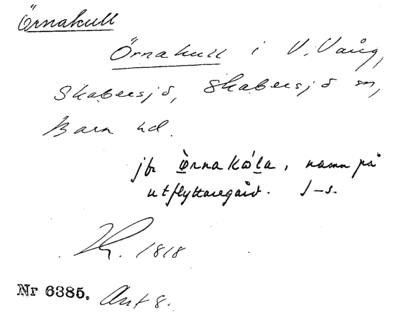 Örnakull
Örnakull i V. Vång,
Skabersjö, Skabersjö sn,
Bara hd.
jfr Òrnakóla, namn på
utflyttaregård. J-s.
1818
Nr 6385. Ant 8.